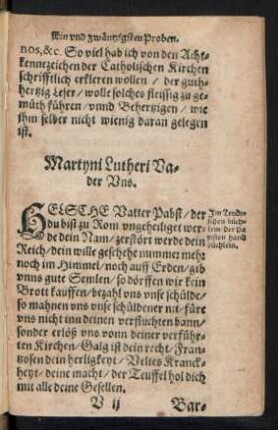 Ein vnd zwäntzigsten Proben.
nos,&c. So viel hab ich von den Acht-
kennezeichen der Catholischen Kirchen
schrifftlich erkleren wollen / der guth-
hertzig Leser / wolle solches fleissig zu ge-
müth führen / vnnd Behertzigen / wie
jhm selber nicht wienig daran gelegen
ist.
Martyni Lutheri Va-
der Vns.
HELSCHE Vatter Pabst / der
du bist zu Rom vngeheiliget wer-
de dein Nam / zerstört werde dein
Reich / dein wille geschehe nummer mehr
noch im Himmel / noch auff Erden / gib
vnns gute Semlen / so dörffen wir kein
Brott kauffen / bezahl vns vnse schülde/
so mahnen vns vnse schüldener nit / füre
vns nicht inn deinen verfluchten bann/
sonder erlöß vns vonn deiner verführ-
ten Kirchen / Galg ist dein recht / Fran-
tzosen dein herligkeyt / Veltes Kranck-
heyt / deine macht / der Teuffel hol dich
mit alle deine Gesellen.
Im Teudt-
schen büch-
lein der Pa
pisten hand
büchlein.
V ij
Bar-